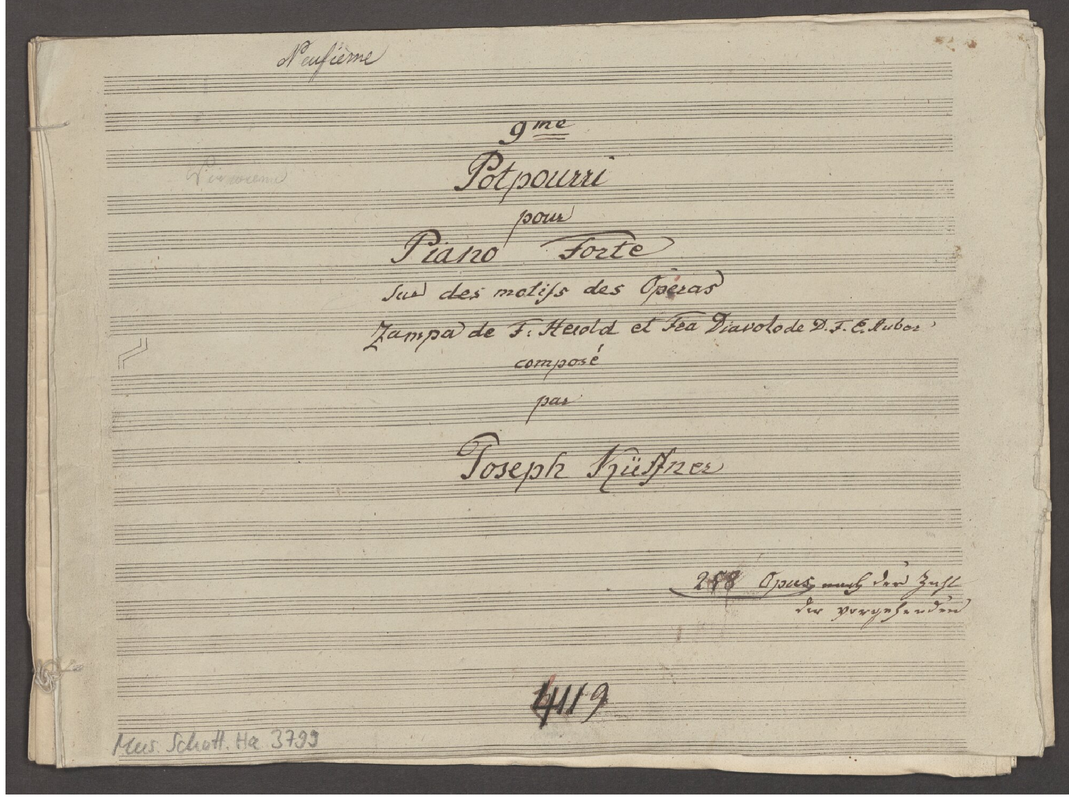 Neufieme
9me
Potpourri
pour
Piano Forte
sur des motifs des Opéras
Zampa de F. Herold et Fra Diavolo de D. F. E. Auber
composé
par
Joseph Küffner
Opus nach der Zahl
der vorgehenden
4119
Mus. Schott. Ha 3799